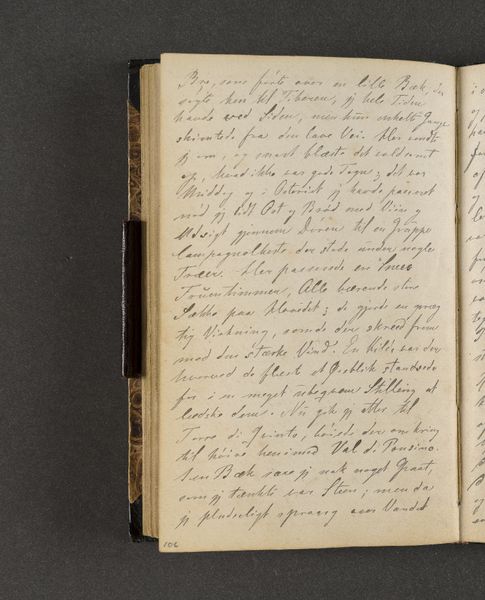 Bro, som førte over en lille Bæk, der
søgte hen til Tiberen, jeg hele Tiden
havde ved Siden, men kun enkelte Gange
skimtede fra den lave Vei. Her vendte
jeg om, og snart blæste det voldsomt
op, hvad ikke var gode Tegn; det var
Middag og i Osteriet jeg havde passeret
nød jeg lidt Ost og Brød med Viin og
Udsigt gjennem Døren til en Gruppe
Campagnolheste der stode under nogle
Træer. Her passerede en
Fruentimmer, Alle bærende store
Sække paa Hovedet; de gjorde en
tig Virkning, som de der skreed frem
mod den stærke Vind. En Kilde var der
hvorved de fleste et Øieblik standsede
for i en meget ubeqvem Stilling at
ledske dem. Nu gik jeg atter til
Torre di Quinto, bøiede der om kring
til høire hen imod Val di Pousino.
I en Bæk saae jeg nok noget Graat,
som jeg tænkte var Steen; men da
jeg pludseligt sprang over Vandet
106